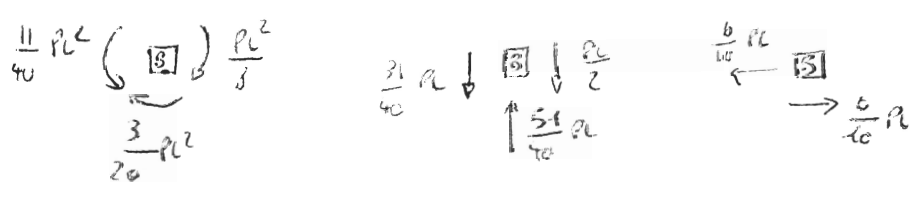 11/40 PL² [3] PL²/3
3/20 PL²
31/40 PL [3] PL/2
51/40 PL
6/40 PL
PL